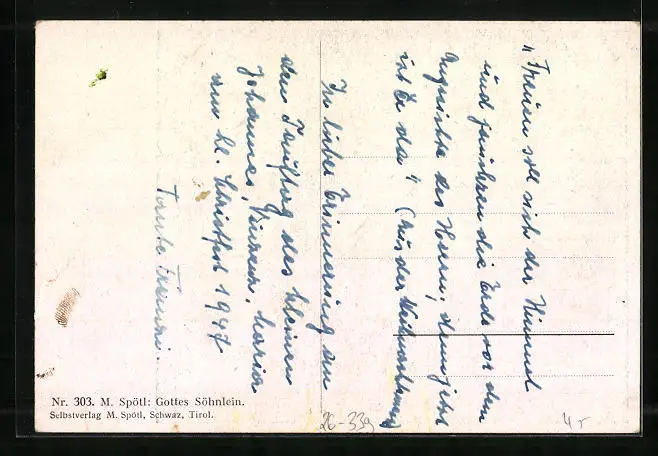 "Freuen soll sich der Himmel
und jauchzen die Erde vor dem
Angesichte des Herrn, denn jetzt
ist Er da" (Aus der Weihnachtsmesse)
In lieber Erinnerung an
den Tauftag des kleinen
Johannes, Vinzenz, Maria
am hl. Christfest 1947
Tante
Nr. 303. M. Spötl: Gottes Söhnlein.
Selbstverlag M. Spötl, Schwaz, Tirol.
26-339